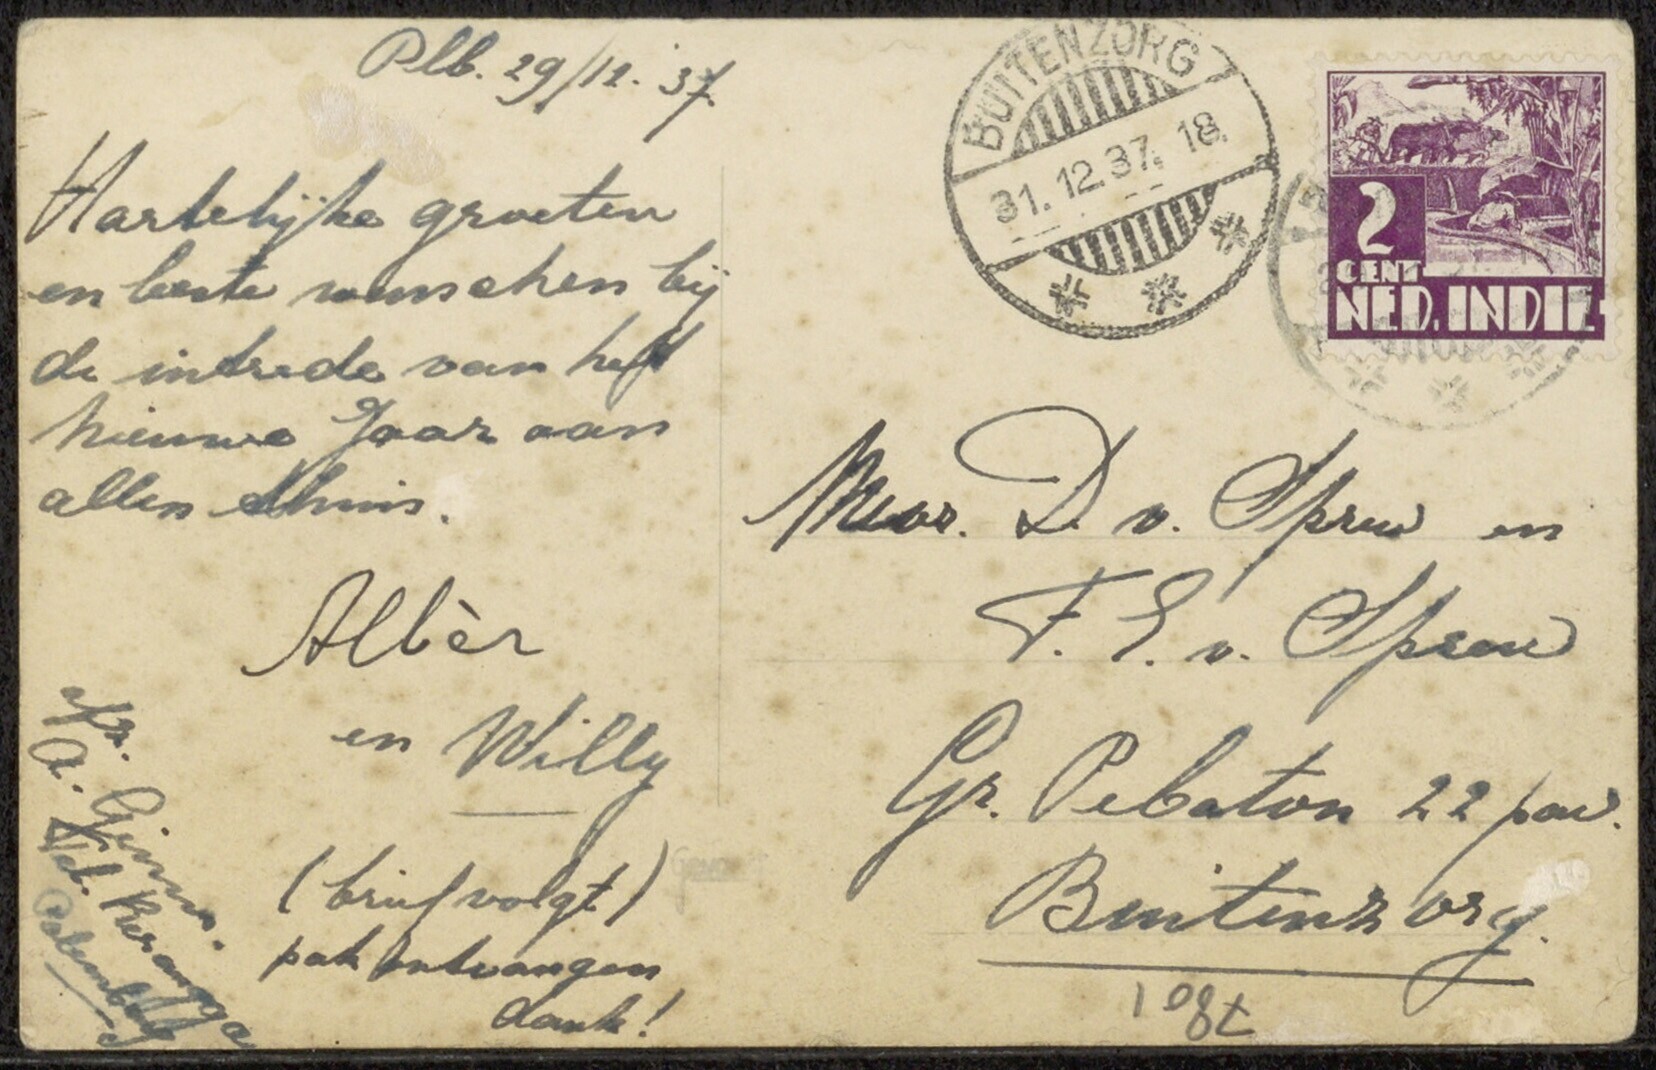 Plb. 29/12.'37.
Hartelijke groeten
en beste wenschen bij
de intrede van het
Nieuwe Jaar aan
allen thuis.
Albèr
en Willy
(brief volgt)
pak ontvangen
dank!
afz.
A. Ginn.
Keb. Karangga
Palembang
BUITENZORG
31.12.37. 18.
2
CENT
NED. INDIE
Mevr. D. v. Spreuw en
F. E. v. Spreuw
Gr. Pebaton 22 pav.
Buitenzorg.